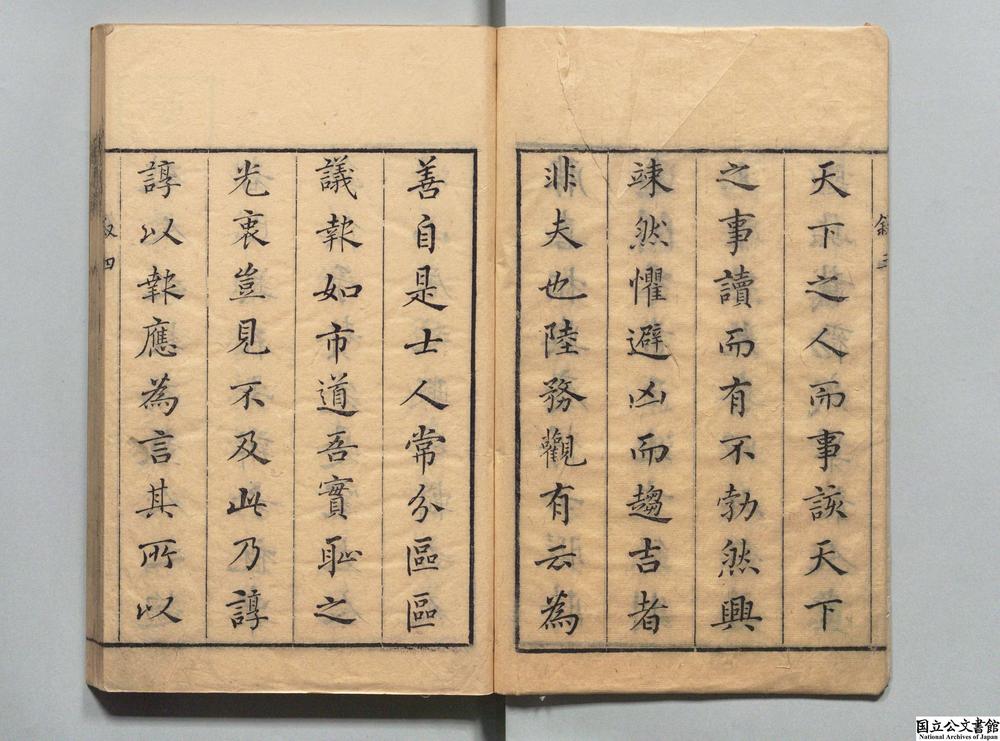 天下之人而事該天下
之事讀而有不勃然興
竦然懼避凶而趨吉者
非夫也陸務觀有云為
善自是士人常分區區
議報如市道吾實恥之
光衷豈見不及此乃諄
諄以報應為言其所以
敘三
叙四
国立公文書館
National Archives of Japan